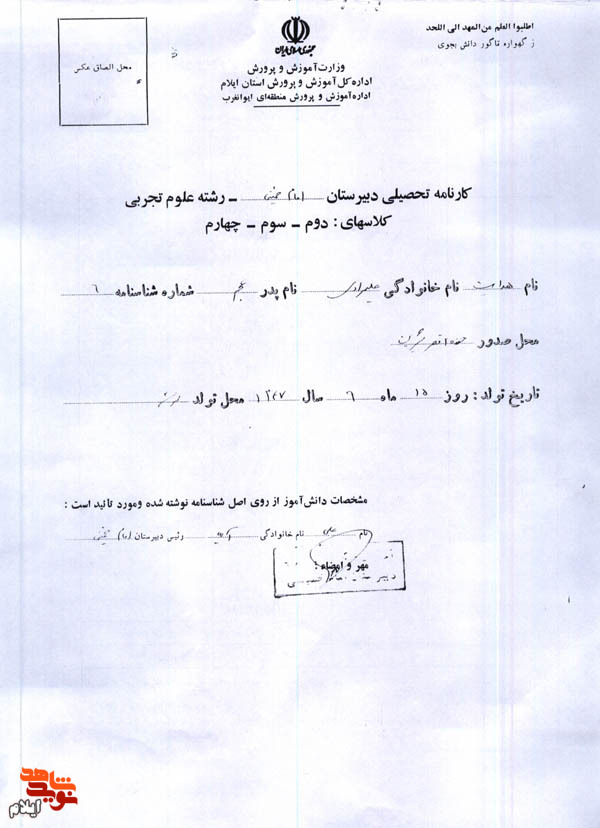 اطلبوا العلم من المهد الی اللحد
ز گهواره تا گور دانش بجوی
جمهوری اسلامی ایران
وزارت آموزش و پرورش
اداره کل آموزش و پرورش استان ایلام
اداره آموزش و پرورش منطقه‌ای ایوانغرب
محل الصاق عکس
کارنامه تحصیلی دبیرستان امام خمینی ـ رشته علوم تجربی
کلاسهای : دوم ـ سوم ـ چهارم
نام هدایت نام خانوادگی علیمرادی نام پدر شماره شناسنامه ۶
محل صدور
تاریخ تولد : روز ۱۵ ماه ۶ سال ۱۳۴۷ محل تولد
مشخصات دانش‌آموز از روی اصل شناسنامه نوشته شده ومورد تائید است :
نام علی نام خانوادگی رئیس دبیرستان امام خمینی
مهر و امضاء :
نوید شاهد
ایلام